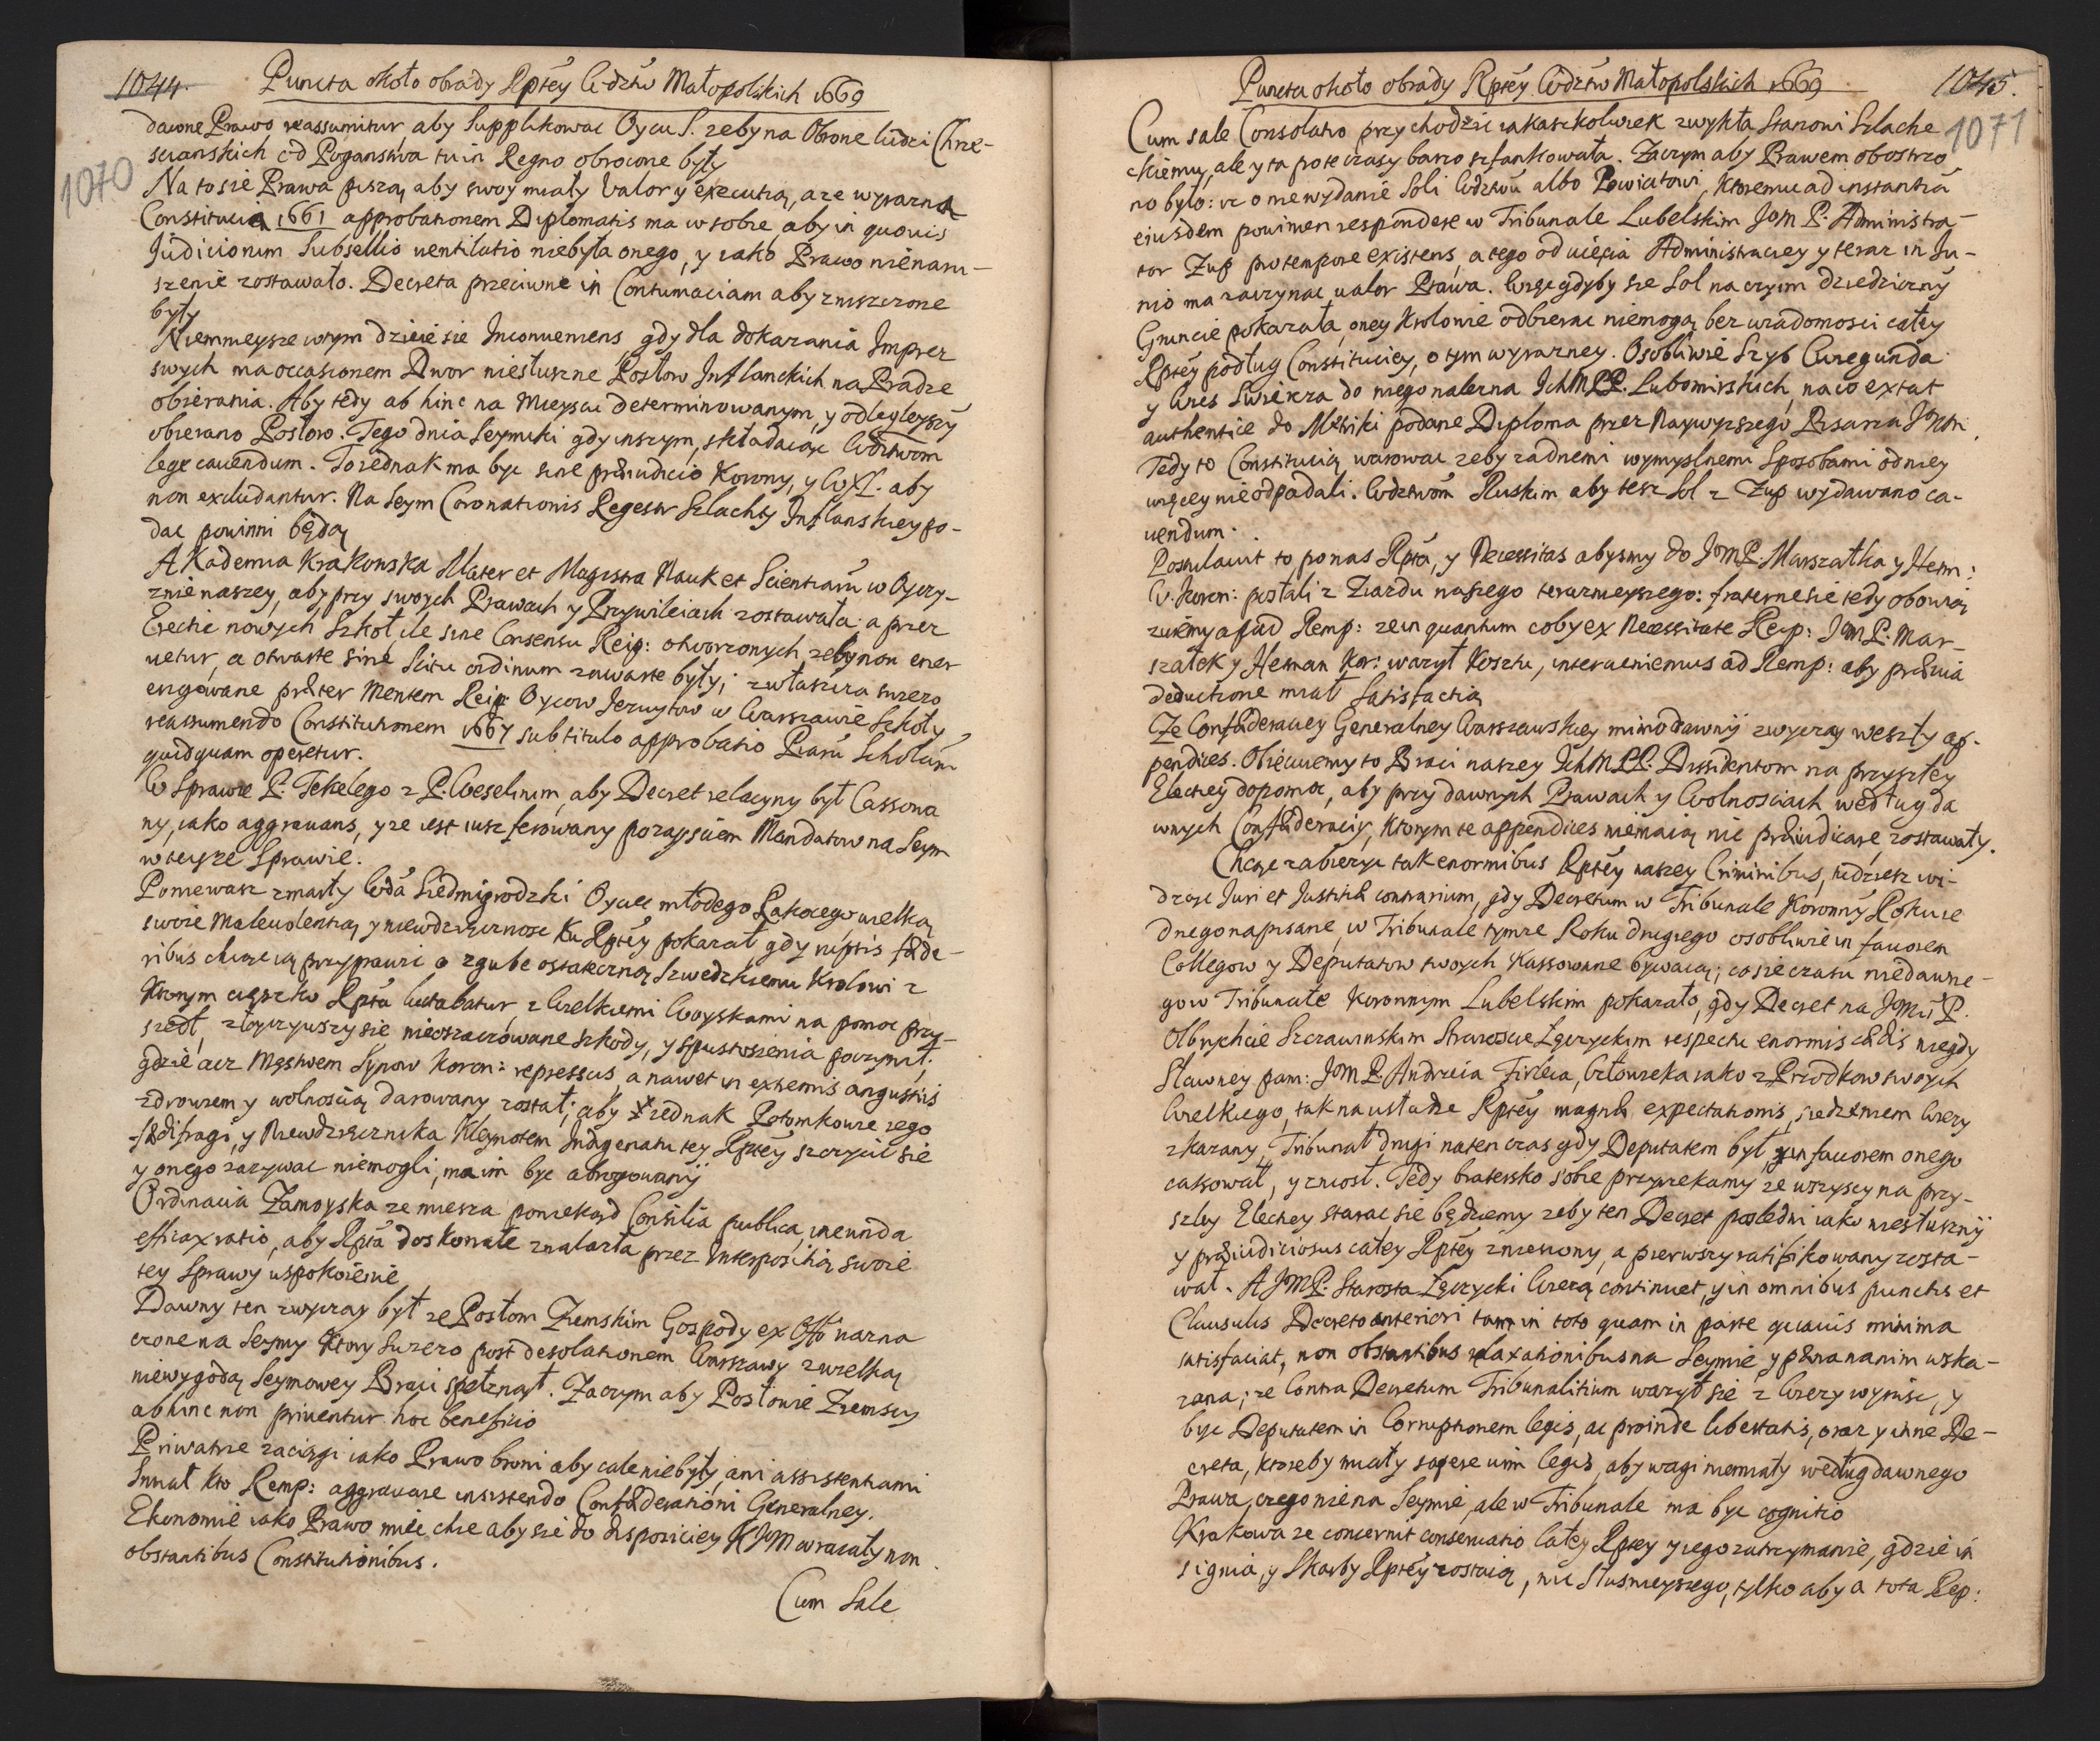 1044.
Puncta około obrady Rptey Wdztw Małopolskich 1669
1070
dawne Prawo reassumitur, aby Supplikowac Oycu S. zeby na Obrone ludzi Chrze-
scianskich od Poganstwa tu in Regno obrocone były
Na to sie Prawa piszą, aby swoy miały Valor y executią, a ze wyrazna
Constitucia 1661 approbationem Diplomatis ma w sobie, aby in quouis
Judiciorum Subsellio uentilatio niebyła onego, y iako Prawo nienaru-
szenie zostawało. Decreta przeciwne in Contumaciam aby zniszczone
były
Niemnieysze w tym dzieie sie Inconueniens, gdy dla dokazania Imprez
swych ma occasionem Dwor niesłuszne Posłow Inflanckich na Pradze
obierania. Aby tedy ab hinc na Mieyscu determinowanym, y odlegleyszy
obierano Posłow. Tego dnia Seymiki gdy inszym, składaiąc Wdztwom
lege cauendum. To iednak ma byc sine præiudicio Korony, y WXL. aby
non excludantur. Na Seym Coronationis Regestr Szlachty Inflanskiey po-
dac powinni będą
AKademia Krakowska Mater et Magistra Nauk et Scientiarũ w Oyczy-
znie naszey, aby przy swoych Prawach y Przywileiach zostawała: a przez
Erectie nowych Szkoł, ile sine Consensu Reip: otworzonych zeby non ener
uetur, a otwarte sine Scitu ordinum zawarte były; zwłaszcza swiezo
erigowane præter Mentem Reip Oycow Jezuytow w Warszawie Szkoły
reassumendo Constitutionem 1667 sub titulo approbatio Piarũ Scholarũ
quidquam operetur.
W Sprawie P: Tekelego z P. Weselinim, aby Decret relacyny był Cassowa
ny, iako aggrauans, y ze iest iusz ferowany po zayściem Mandatow na Seym
w teyze Sprawie.
Poniewasz zmarły Wda Siedmigrodzki Oyciec młodego Rakocego wielką
swoie Maleuolentią y niewdzięcznosc Ku Rptey pokazał gdy ruptis fæde-
ribus chcąc ią przyprawic o zgube ostateczną Szwedzkiemu Krolowi z
Ktorym cięszko Rpta luctabatur, z Wielkiemi Woyskami na pomoc przy-
szedł, złączywszy sie nieoszacowane szkody, y spustoszenia poczynił;
gdzie acz Męstwem Synow Koron: repressus, a nawet in extremis angustiis
zdrowiem y wolnoscią darowany został; aby iednak Potomkowie iego
fædifragi, y Niewdzięcznika Kleynotem Indigenatu tey Rptey szczycic sie
y onego zazywac niemogli, ma im byc abrogowanÿ
Ordinacia Zamoyska ze miesza poniekąd Consilia publica, ineunda
efficax ratio, aby Rpta doskonałe znalazła przez Interpositią swoie
tey Sprawy uspokoienie
Dawny ten zwyczay był ze Posłom Ziemskim Gospody ex Offo nazna
czone na Seymy Ktory swiezo post desolationem Warszawy z wielką
niewygodą Seymowey Braci spełznął. Zaczym aby Posłowie Ziemscy
ab hinc non priuentur hoc beneficio
Priwatne zaciągi iako Prawo broni aby cale niebyły, ani assistentiami
Smiał kto Remp: aggrauare insistendo Confæderationi Generalney.
Ekonomie iako Prawo miec chce aby sie do dispoziciey KJM wracały non
obstantibus Constitutionibus.
Cum Sale
Puncta około obrady Rptey Wdztw Małopolskich 1669
1045.
1071
Cum sale Consolatio przychodzic iakaszkolwiek zwykła Stanowi Szlache
ckiemu, ale y ta pote czasy barzo szfankowała. Zaczym aby Prawem obostrzo
no było: ze o niewydanie Soli Wdztwu albo Powiatowi, Ktoremu ad instantiã
eiusdem powinien respondere w Tribunale Lubelskim JOM P. Administra-
tor Zup pro tempore existens, a tego od więcia Administraciey y teraz in Ju-
nio ma zaczynac ualor Prawa. Więc gdyby sie Sol na czyim dziedziczny
Gruncie pokazała, oney Krolowie odbierac niemogą bez wiadomosci całey
Rptey podług Constituciey, o tym wyrazney. Osobliwie Szyb Cunegunda
y Wies Swierza do niego nalezna IchMPP. Lubomirskich, na co extat
authentice do Metriki podane Diploma przez Naywyzszego Pisarza JMCi
Tedy to Constitucią warowac zeby zadnemi wymyslnemi Sposobami od niey
więcey nie odpadali. Wdztwõm Ruskim aby tesz Sol z Zup wydawano ca-
uendum.
Postulauit to po nas Rpta, y Necessitas abysmy do JOMP. Marszałka y Hetm:
W. Koron: posłali z Ziazdu naszego terazniejszego: fraterne sie tedy obowią
zuiemy apud Remp: ze in quantum coby ex Necessitate Reip: JOM P. Mar-
szałek y Hetman Kor: wazył Kosztu, interueniemus ad Remp: aby præuia
deductione miał Satisfactią
Ze Confæderaciey Generalney Warszawskiey mimo dawnÿ zwyczay weszły ap-
pendices. Obiecuiemy to Braci naszey IchMPP. Dissidentom na przyszłey
Elekciey dopomoc, aby przy dawnych Prawach y Wolnosciach według da
wnych Confæderaciy, Ktorym te appendices niemaią nic præiudicare, zostawały.
Chcąc zabiezyc tak enormibus Rptey naszey Criminibus, tudziesz wi-
dząc Juri et Justitiæ contrarium, gdy Decretum w Tribunale Koronnỹ Roku ie
dnego napisane, w Tribunale tymze Roku drugiego osobliwie in fauorem
Collegow y Deputatow swoych Kassowane bywaią; co sie czasu niedawne-
go w Tribunale Koronnym Lubelskim pokazało, gdy Decret na JOMci P.
Olbrychcie Szczawinskim Staroscie Łęczyckim respectu enormis cædis niegdy
Sławney pam: JOM P. Andrzeia Firleia, Człowieka iako z Przodkow swoych
Wielkiego, tak na usłudze Rptey magnæ expectationis, siedzeniem Wiezy
zkarany, Tribunał drugi naten czas gdy Deputatem był, in fauorem onego
cassował, y zniosł. Tedy bratersko sobie przyrzekamy ze wszyscy na przy-
szley Elekciey starac sie będziemy zeby ten Decret posledni iako niesłusznÿ
y præiudiciosus całey Rptey zniesiony, a pierwszy ratifikowany zosta-
wał. A JOMP: Starosta Łęczycki Wiezą continuet, y in omnibus punctis et
Clausulis Decreto anteriori tam in toto quam in parte quauis minima
satisfaciat, non obstantibus relaxationibus na Seymie y pæna na nim wska-
zana; ze Contra Decretum Tribunalitium wazył sie z Wiezy wyniśc, y
byc Deputatem in Corruptionem legis, ac proinde libertatis, oraz y inne De-
creta, ktoreby miały sapere uim legis, aby wagi niemiały według dawnego
Prawa, czego nie na Seymie, ale w Tribunale ma byc cognitio
Krakowa ze concernit conseruatio całey Rptey y iego zatrzymanie, gdzie in
signia, y Skarby Rptey zostaią, nic Słusznieyszego, tylko aby a tota Rep: